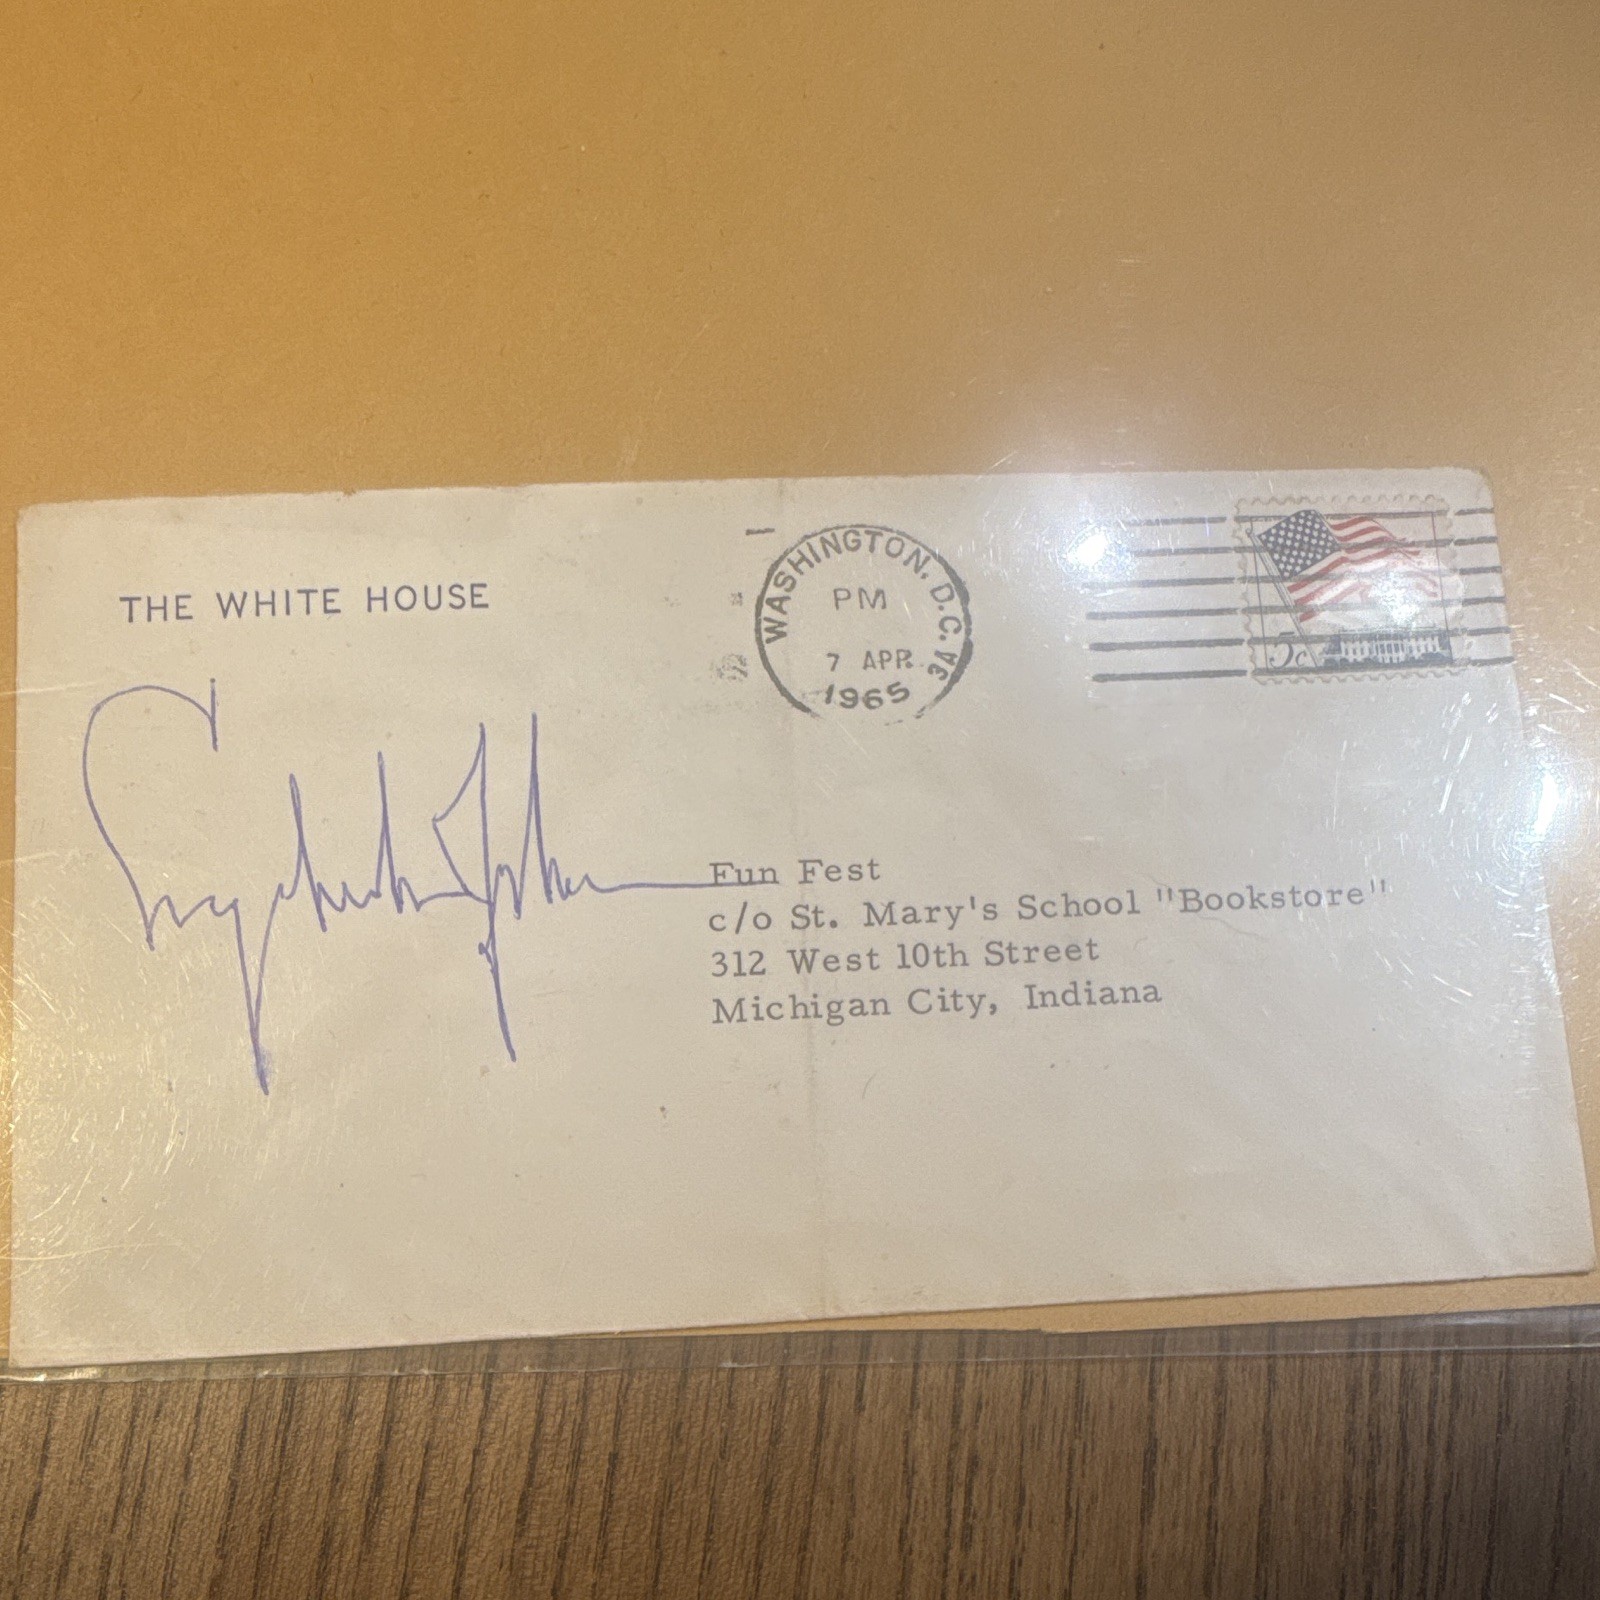 THE WHITE HOUSE
WASHINGTON, D.C. 3A
PM
7 APR
1965
5c
Fun Fest
c/o St. Mary's School "Bookstore"
312 West 10th Street
Michigan City, Indiana